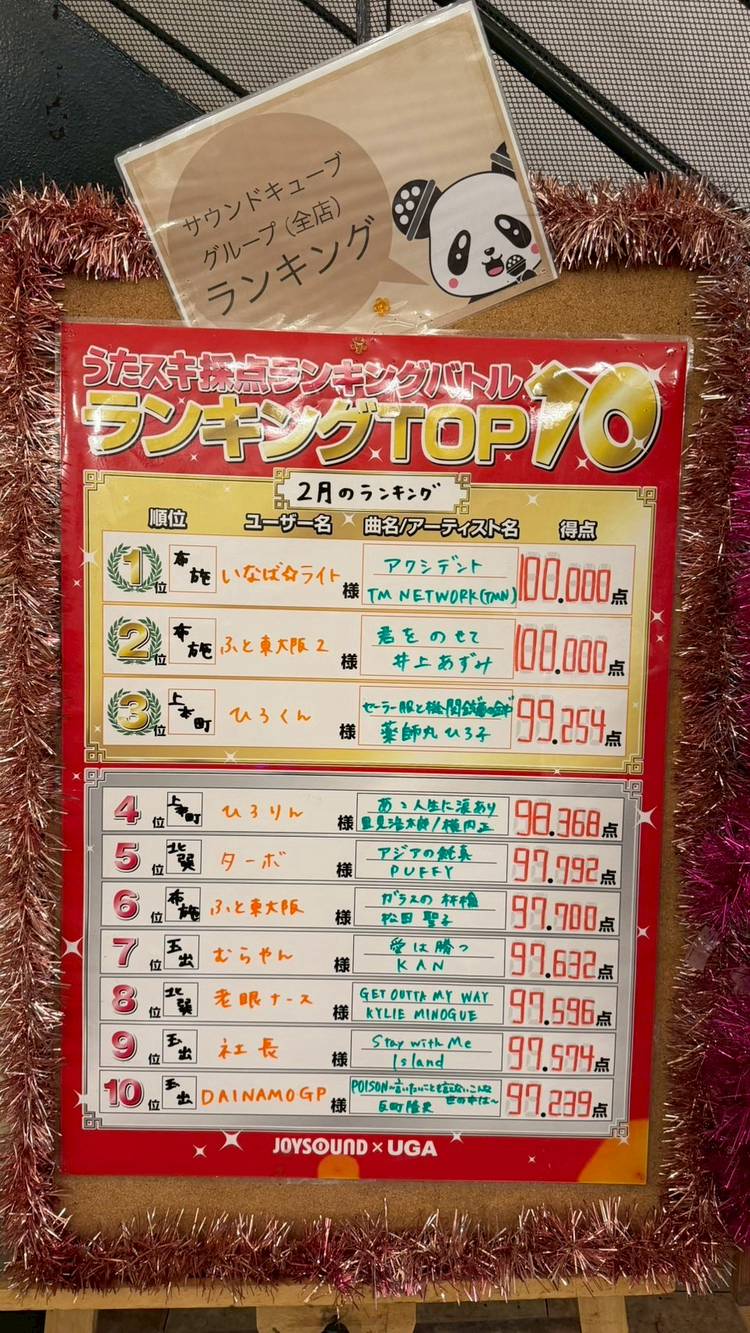 サウンドキューブ
グループ(全店)
ランキング
うたスキ採点ランキングバトル
ランキングTOP10
2月のランキング
順位 ユーザー名 曲名/アーティスト名 得点
1位 布施 いなば☆ライト様 アクシデント 100.000点
TM NETWORK(TMN)
2位 布施 ふと東大阪2様 君をのせて 100.000点
井上あずみ
3位 上本町 ひろくん様 セーラー服と機関銃 99.254点
薬師丸ひろ子
4位 上本町 ひろりん様 あゝ人生に涙あり 98.368点
里見浩太郎/横内正
5位 北巽 ターボ様 アジアの純真 97.792点
PUFFY
6位 布施 ふと東大阪様 ガラスの林檎 97.700点
松田聖子
7位 玉出 むらやん様 愛は勝つ 97.632点
KAN
8位 北巽 老眼ナース様 GET OUTTA MY WAY 97.596点
KYLIE MINOGUE
9位 玉出 社長様 Stay with Me 97.574点
Island
10位 玉出 DAINAMOGP様 POISON~言いたいことも言えないこんな 97.239点
世の中は~
反町隆史
JOYSOUND×UGA